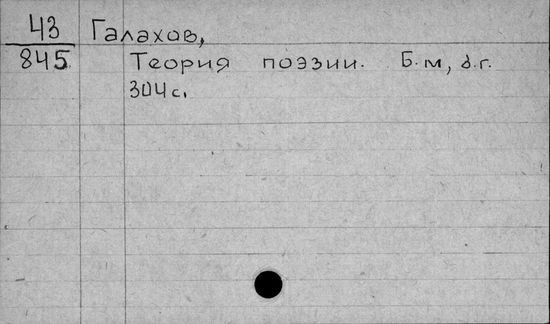 43 Галахов,
845 Теория поэзии. Б.м, б.г.
304 с.